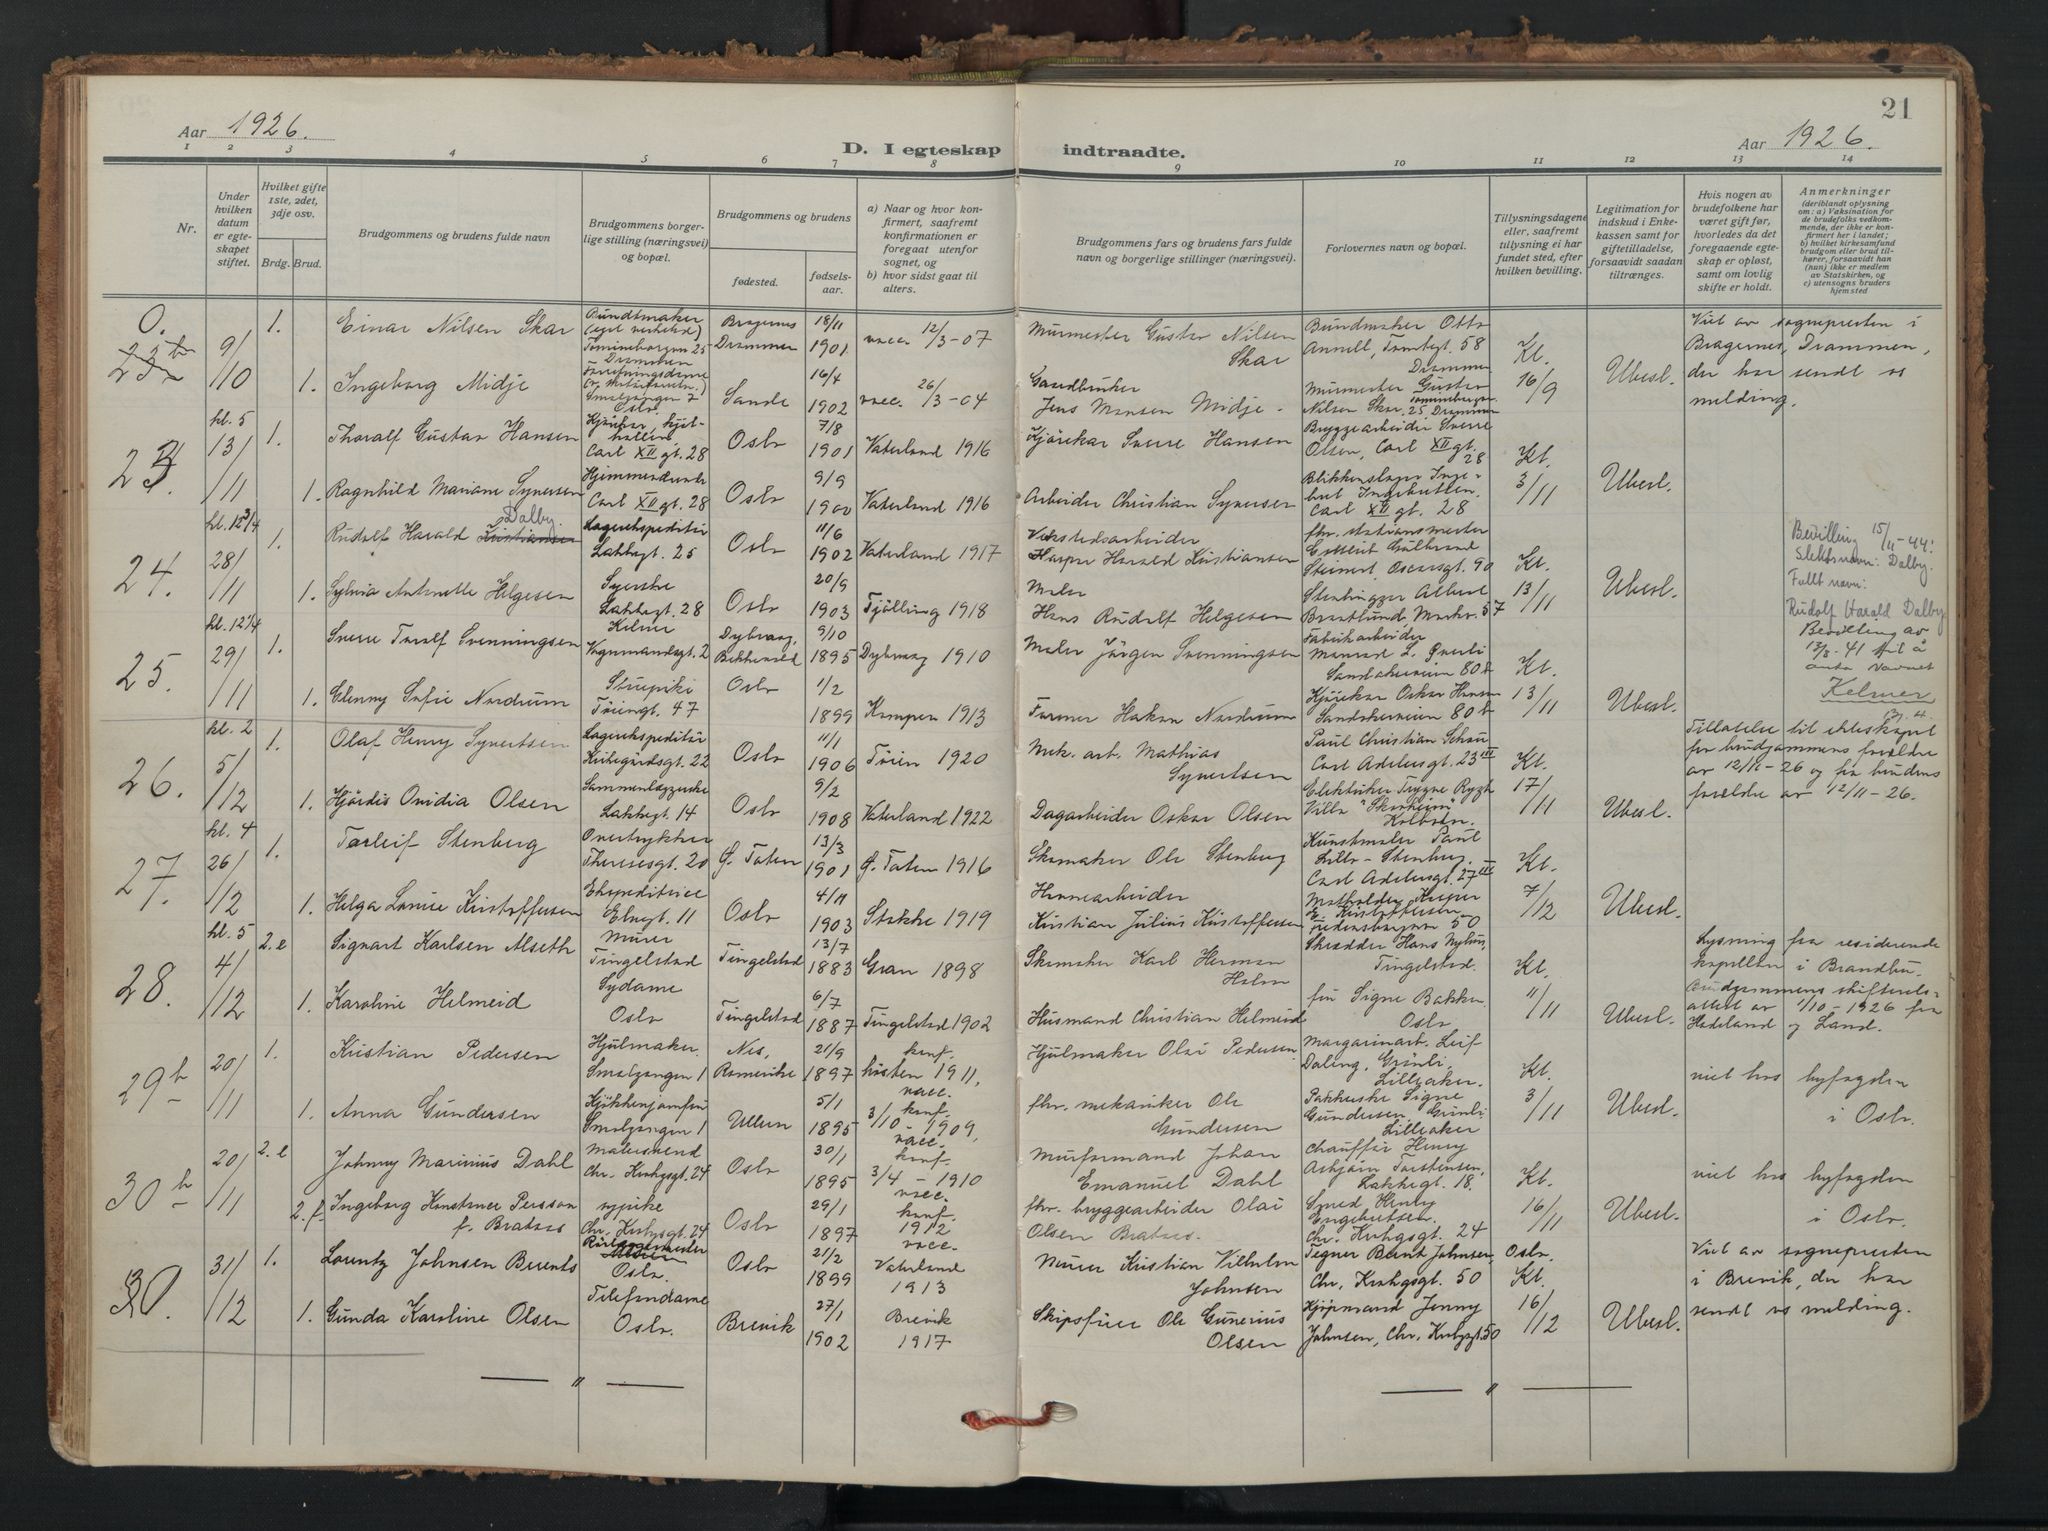 21
Aar 1926.
D. I egteskap indtraadte.
Aar 1926.
1 2 3 4 5 6 7 8 9 10 11 12 13 14
Nr.
Under hvilken datum er egteskapet stiftet.
Hvilket gifte 1ste, 2det, 3dje osv.
Brdg. Brud.
Brudgommens og brudens fulde navn
Brudgommens borgerlige stilling (næringsvei) og bopæl.
Brudgommens og brudens
fødested.
fødselsaar.
a) Naar og hvor konfirmert, saafremt konfirmationen er foregaat utenfor sognet, og
b) hvor sidst gaat til alters.
Brudgommens fars og brudens fars fulde navn og borgerlige stillinger (næringsvei).
Forlovernes navn og bopæl.
Tillysningsdagene eller, saafremt tillysning ei har fundet sted, efter hvilken bevilling.
Legitimation for indskud i Enkekassen samt for giftetilladelse, forsaavidt saadan tiltrænges.
Hvis nogen av brudefolkene har været gift før, hvorledes da det foregaaende egteskap er opløst, samt om lovlig skifte er holdt.
Anmerkninger
(deriblandt oplysning om: a) Vaksination for de brudefolks vedkommende, der ikke er konfirmert her i landet; b) hvilket kirkesamfund brudgom eller brud tilhører, forsaavidt han (hun) ikke er medlem av Statskirken, og c) utensogns bruders hjemsted
0. 9/10 1. Einar Nilsen Skar Buntmaker Tomineborgen 25 Drammen Bragernes Drammen 18/11 1901 vacc. 12/3-07 Murmester Gustav Nilsen Skar Bundmaker Otto Annell, Tomtegt. 58 Drammen Kl. 16/9 Ubesl. Viet av sognepresten i Bragernes, Drammen, der har sendt os melding.
1. Ingeborg Midje Smalgangen 7 Oslo Sande 16/4 1902 vacc. 26/3-04 Gaardbruker Jens Hansen Midje Murmester Gustav Nilsen Skar, 25, Drammen
23. kl. 5 13/11 1. Thoralf Gustav Hansen Carl XII gt. 28 Oslo 7/8 1901 Vaterland 1916 Kjørekar Sverre Hansen Bryggearbeider Sverre Olsen, Carl XII gt. 28 Kl. 3/11 Ubesl.
1. Ragnhild Mariane Syversen Hjemmeværende Carl XII gt. 28 Oslo 9/9 1900 Vaterland 1916 Arbeider Christian Syversen Carl XII gt. 28
24. kl. 12 3/4 28/11 1. Rudolf Harald Kristiansen Dalby. Lagerekspeditør Lakkegt. 25 Oslo 11/6 1902 Vaterland 1917 Verkstedsarbeider Kasper Harald Kristiansen fhv. stationsmester Steinert, Oscarsgt. 90 Kl. 13/11 Ubesl. Bevilling 15/11-44: Slektsnavn: Dalby. Fullt navn: Rudolf Harald Dalby
1. Sylvia Antonette Helgesen Syerske Lakkegt. 28 Oslo 20/9 1903 Tjølling 1918 Maler Hans Rudolf Helgesen
25. kl. 12 1/4 29/11 1. Sverre Toralf Svenningsen Kelner Vognmandsgt. 2 Dybvaag, 9/10 1895 Dybvaag 1910 Maler Jørgen Svenningsen Fabrikarbeider Sandakerveien 80 b Kl. 13/11 Ubesl. Bevilling av 13/3-41 til å anta navnet Kelmer
1. Glenny Sofie Nordrum Strupiki Tøiengt. 47 Oslo 1/2 1899 Kampen 1913 Former Hakon Nordrum Kjørekar Oskar Hansen Sandakerveien 80 b
26. kl. 2 5/12 1. Olaf Henry Syvertsen Lagerekspeditør Kirkegårdsgt. 22 Oslo 11/1 1906 Tøien 1920 Mek. arb. Mathias Syvertsen Paul Christian Schou Carl Adelersgt. 23 III Kl. 17/11 Ubesl. Tillatelse til ekteskapet fra brudgommens forældre av 12/11-26 og fra brudens forældre av 12/11-26.
1. Hjørdis Ovidia Olsen Sammenlæggerske Lakkegt. 14 Oslo 9/2 1908 Vaterland 1922 Dagarbeider Oskar Olsen Elektriker Trygve Villa Kolbotn.
27. kl. 4 26/12 1. Torleif Stenberg Overtrykker Theresesgt. 20 Ø. Toten 13/3 1901 Ø. Toten 1916 Skomaker Ole Stenberg Kunstmaler Paul Lillo-Stenberg Carl Adelersgt. 27 III Kl. 7/12 Ubesl.
1. Helga Louise Kristoffersen Ekspeditrice Elvegt. 11 Oslo 4/11 1903 Stokke 1919 Havnearbeider Kristian Julius Kristoffersen Kristoffersen Fredensborgveien 50
28. kl. 5 4/12 2. e Signart Karlsen Alseth Murer Tingelstad Tingelstad 13/7 1883 Gran 1898 Skomaker Karl Herman Holm Skrædder Hans Nyhus, Tingelstad. Kl. 11/11 Ubesl. Lysning fra residerende kapellan i Brandbu. Brudgommens skifteretsattest av 1/10-1926 fra Hadeland og Land.
1. Karoline Helmeid Sydame Oslo Tingelstad 6/7 1887 Tingelstad 1902 Husmand Christian Helmeid frk Signe Bakken Oslo.
29 b 20/11 1. Kristian Pedersen Hjulmaker. Smalgangen 1 Nes, Romerike 21/9 1897 konf. høsten 1911, vacc. Hjulmaker Olai Pedersen Margarinarb. Leif Daling, Grønli Lilleaker. Kl. 3/11 Ubesl. viet hos byfogden i Oslo.
1. Anna Gundersen Kjøkkenjomfru Smalgangen 1 Ullern 5/1 1895 konf. 3/10 1909, vacc. fhv. mekaniker Ole Gundersen Pakkerske Signe Gundersen, Grønli Lilleaker
30 b 20/11 2. e Johnny Marinius Dahl Malersvend Chr. Krohgsgt. 24 Oslo 30/1 1895 konf. 3/4-1910 vacc. Murformand Johan Emanuel Dahl Chauffør Henry Asbjørn Torstensen, Lakkegt. 18. Kl. 16/11 Ubesl. viet hos byfogden i Oslo.
2. f. Ingeborg Konstanse Persson f. Brataas sypike Chr. Krohgsgt. 24 Oslo 29/1 1897 konf. 1912 vacc. fhv. bryggearbeider Olai Olsen Brataas. Smed Henry Engebretsen. Chr. Krohgsgt. 24
30. 31/12 1. Lorentz Johnsen Berents Oslo. Oslo 21/2 1899 Vaterland 1913 Murer Kristian Vilhelm Johnsen Tegner Bernt Johnsen, Chr. Krohgsgt. 50 Oslo. Kl. 16/12 Ubesl. Viet av sognepresten i Brevik, der har sendt os melding.
1. Gunda Karoline Olsen Telefondame Oslo. Brevik 27/1 1902 Brevik 1917 Skipsfører Ole Gunerius Olsen Kjøpmand Jenny Johnsen, Chr. Krohgsgt. 50